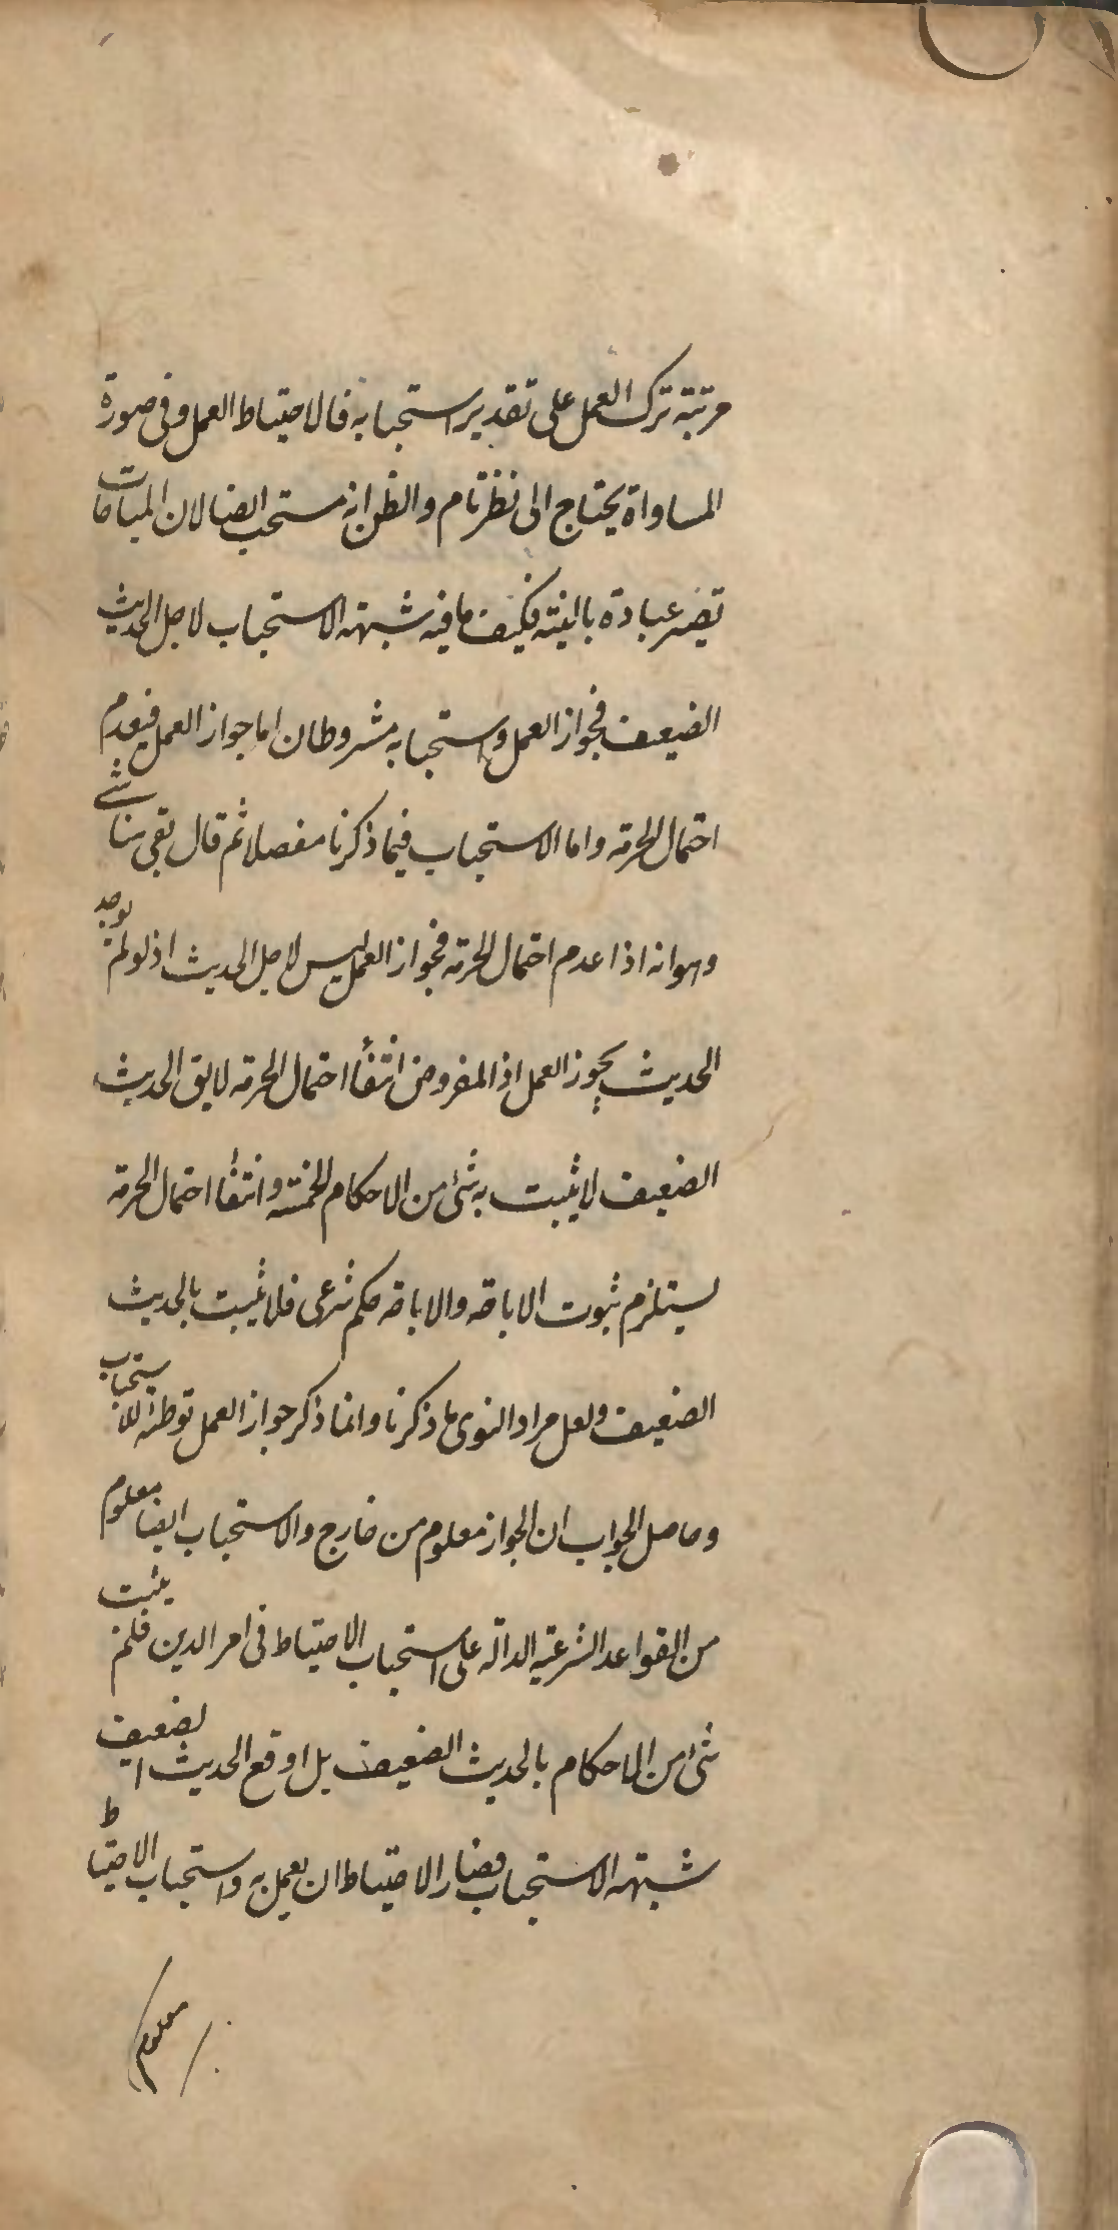 مرتبة ترك العمل على تقدير استحبابه فالاحتياط العمل وفى صورة
المساواة يحتاج الى نظر تام والظن انه مستحب ايضا لان المباحات
تصير عبادة بالنية فكيف ما فيه شبهة الاستحباب لاجل الحديث
الضعيف فجواز العمل واستحبابه مشروطان اما جواز العمل فبعدم
احتمال الحرمة واما الاستحباب فيما ذكرنا مفصلا ثم قال بقى هنا شئ
وهو انه اذا عدم احتمال الحرمة فجواز العمل ليس لاجل الحديث اذ لو لم يوجد
الحديث يجوز العمل اذ المفروض انتفأ احتمال الحرمة لا يق الحديث
الضعيف لا يثبت به شئ من الاحكام الخمسة وانتفأ احتمال الحرمة
يستلزم ثبوت الاباحة والاباحة حكم شرعى فلا يثبت بالحديث
الضعيف ولعل مراد النوى ما ذكرنا وانما ذكر جواز العمل توطئة للاستحباب
وحاصل الجواب ان الجواز معلوم من خارج والاستحباب ايضا معلوم
من القواعد الشرعية الدالة على استحباب الاحتياط فى امر الدين فلم يثبت
شئ من الاحكام بالحديث الضعيف بل اوقع الحديث الضعيف
شبهة الاستحباب فصار الاحتياط ان يعمل به واستحباب الاحتياط
معلوم